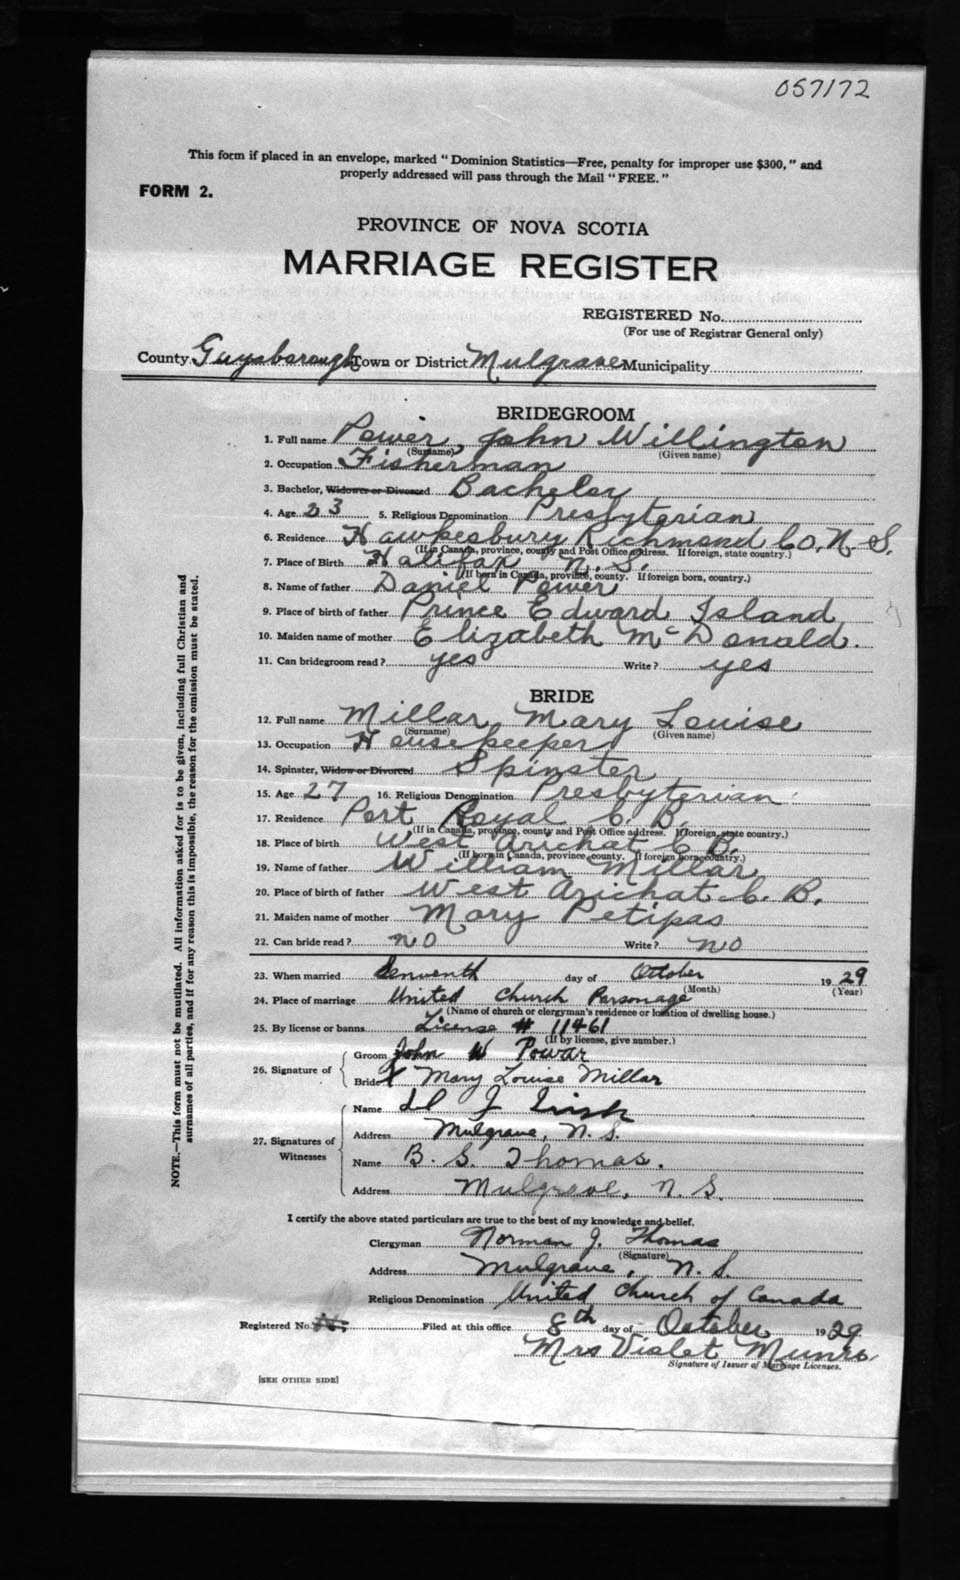 057172
This form if placed in an envelope, marked "Dominion Statistics—Free, penalty for improper use $300," and
properly addressed will pass through the Mail "FREE."
FORM 2.
PROVINCE OF NOVA SCOTIA
MARRIAGE REGISTER
REGISTERED No.
(For use of Registrar General only)
County Guysborough Town or District Mulgrave Municipality
BRIDEGROOM
1. Full name Power, John Willington
(Surname) (Given name)
2. Occupation Fisherman
3. Bachelor, Widower or Divorced Bachelor
4. Age 23 5. Religious Denomination Presbyterian
6. Residence Hawkesbury Richmond Co. N. S.
(If in Canada, province, county and Post Office address. If foreign, state country.)
7. Place of Birth Halifax N. S.
(If born in Canada, province, county. If foreign born, country.)
8. Name of father Daniel Power
9. Place of birth of father Prince Edward Island
10. Maiden name of mother Elizabeth McDonald.
11. Can bridegroom read? yes Write? yes
BRIDE
12. Full name Millar, Mary Louise
(Surname) (Given name)
13. Occupation Housekeeper
14. Spinster, Widow or Divorced Spinster
15. Age 27 16. Religious Denomination Presbyterian
17. Residence Port Royal C. B.
(If in Canada, province, county and Post Office address. If foreign, state country.)
18. Place of birth West Arichat C B.
(If born in Canada, province, county. If foreign born, country.)
19. Name of father William Millar
20. Place of birth of father West Arichat C. B.
21. Maiden name of mother Mary Petipas
22. Can bride read? no Write? no
23. When married Senventh day of October 1929
(Month) (Year)
24. Place of marriage United Church Parsonage
(Name of church or clergyman's residence or location of dwelling house.)
25. By license or banns License # 11461
(If by license, give number.)
26. Signature of Groom John W Powar
Bride X Mary Louise Millar
27. Signatures of Witnesses
Name J Irish
Address Mulgrave, N. S.
Name B. S. Thomas.
Address Mulgrave, N. S.
I certify the above stated particulars are true to the best of my knowledge and belief.
Clergyman Norman J. Thomas
(Signature)
Address Mulgrave, N. S.
Religious Denomination United Church of Canada
Registered No. Filed at this office 8th day of October 1929
Mrs Violet Munro.
Signature of Issuer of Marriage Licenses.
[SEE OTHER SIDE]
NOTE.—This form must not be mutilated. All information asked for is to be given, including full Christian and
surnames of all parties, and if for any reason this is impossible, the reason for the omission must be stated.